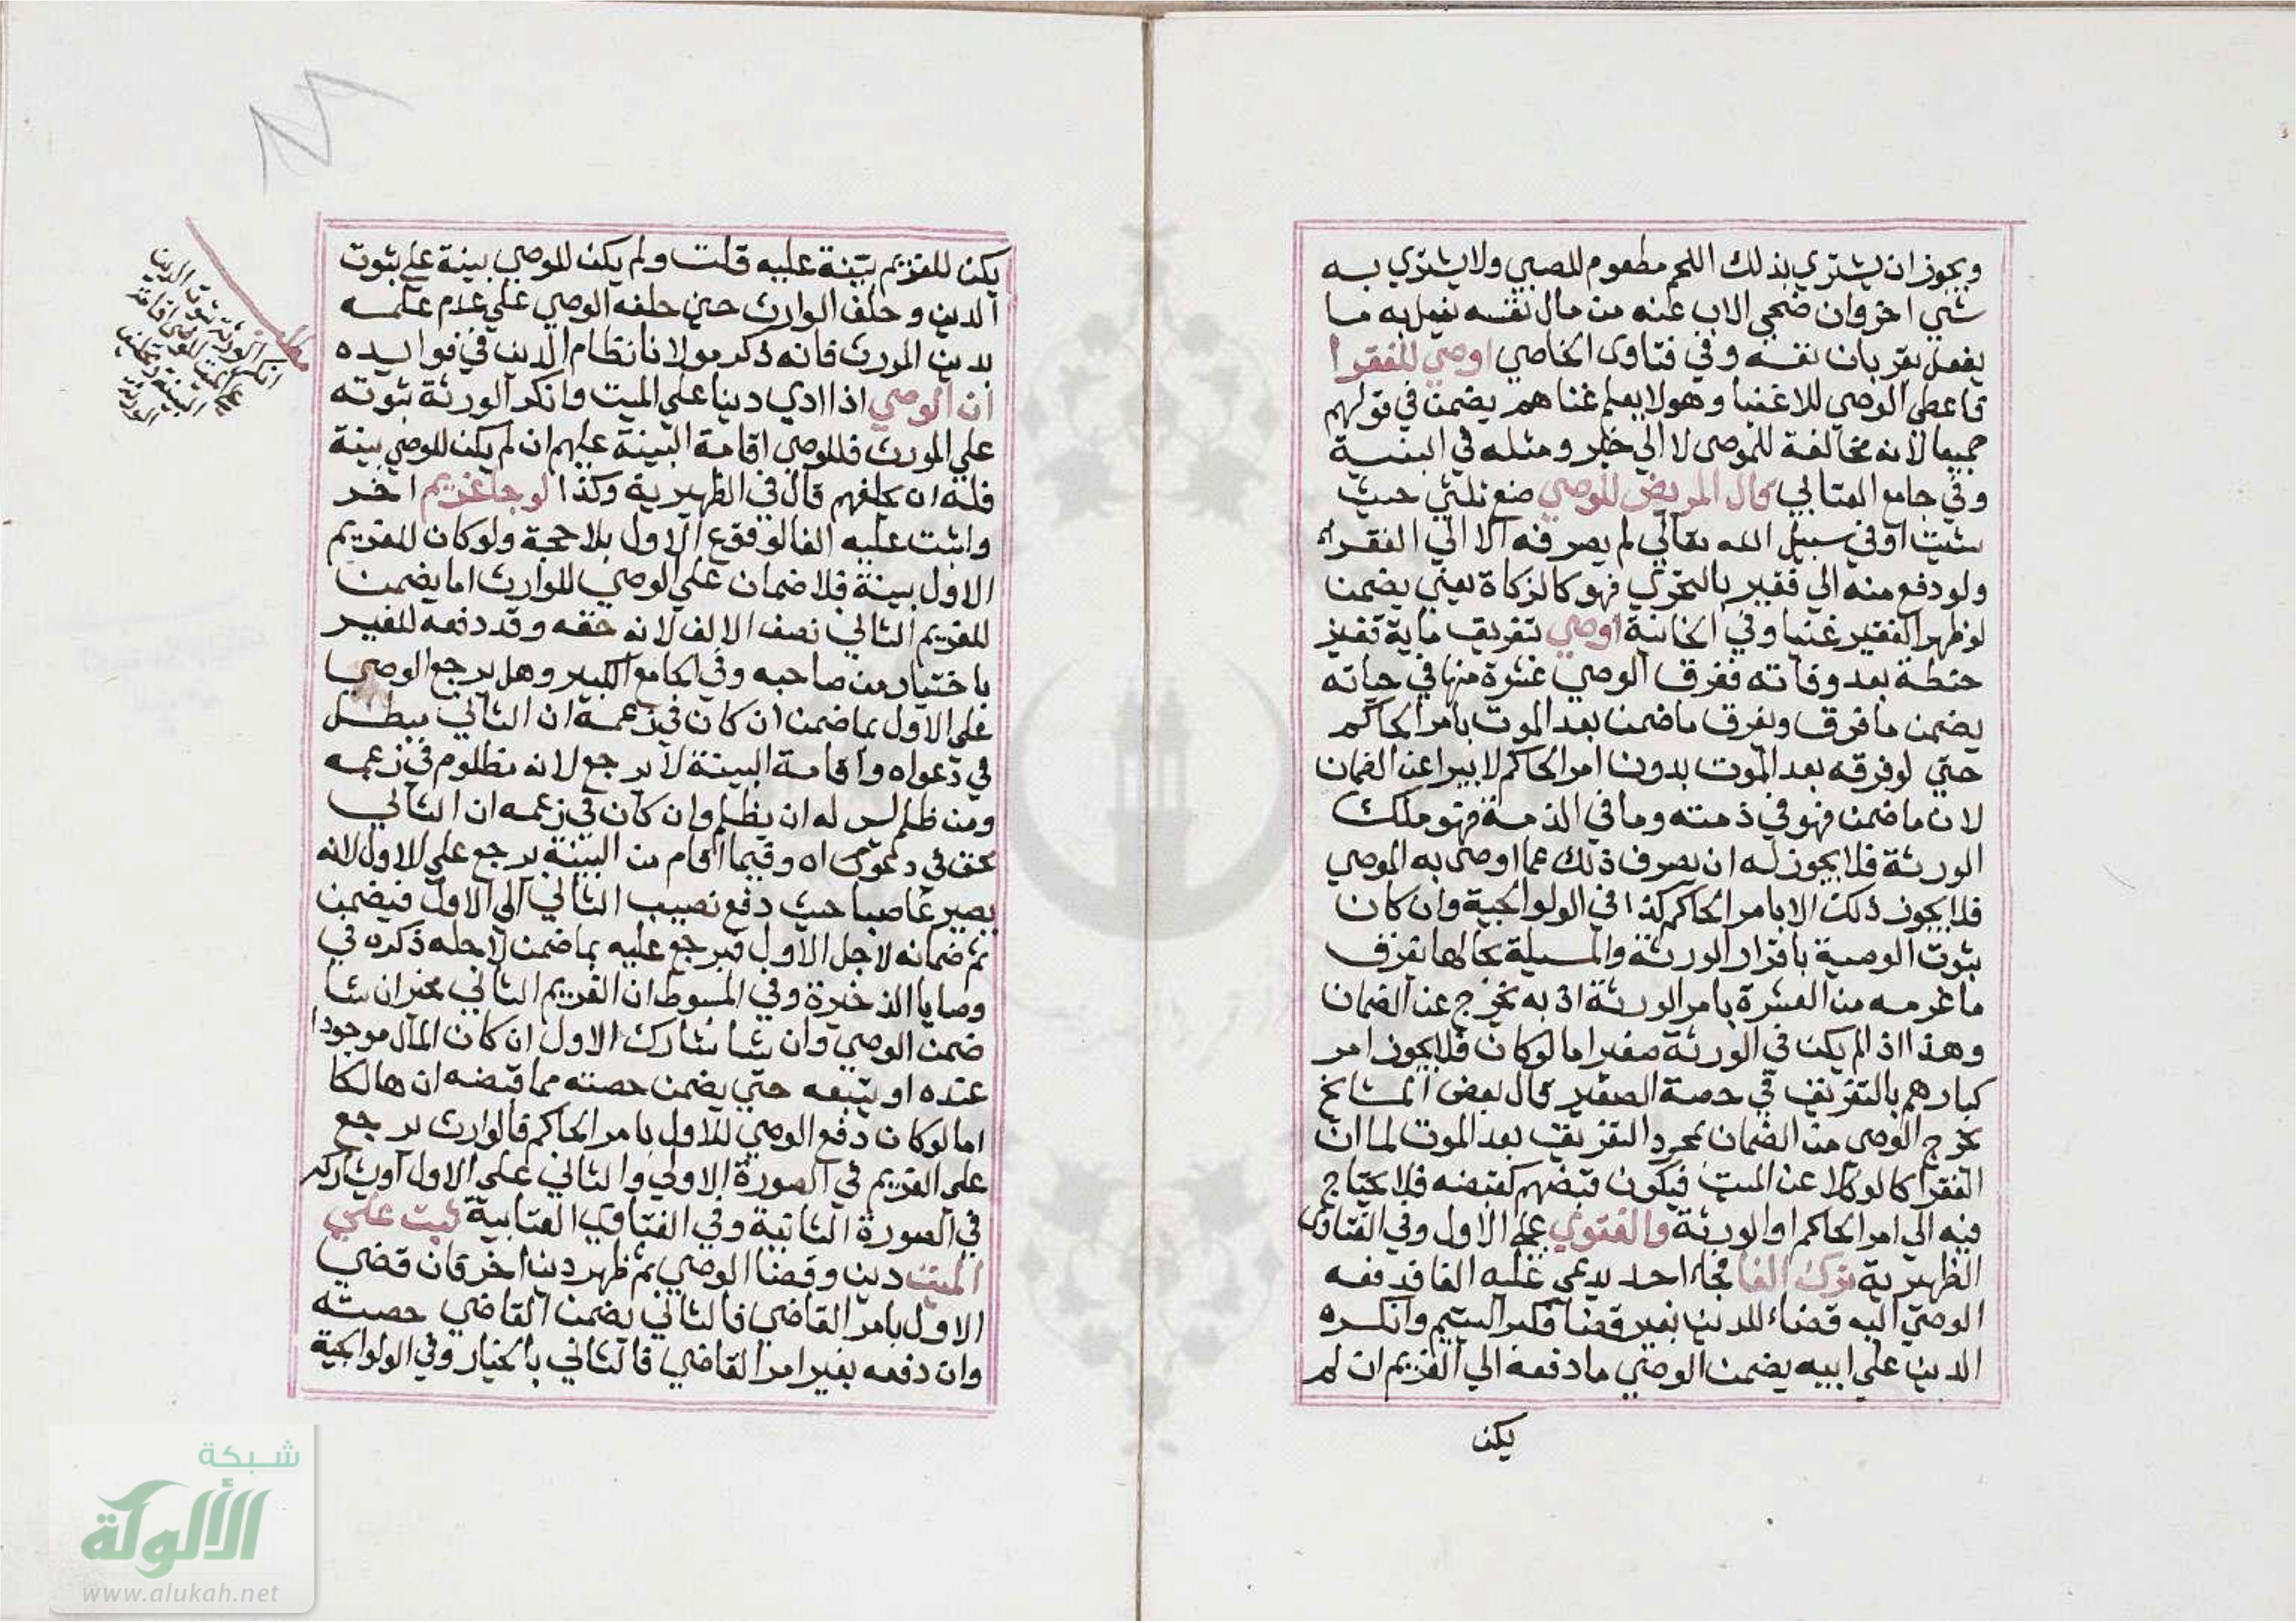 ويجوز ان يشتري بذلك اللحم مطعوم للصبي ولا يشتري به
شي اخر وان ضحي الاب عنه من مال نفسه يفعل به ما
يفعل بقربان نفسه وفي فتاوى الخاصي اوصي للفقرا
فاعطى الوصي للاغنيا وهو لا يعلم غناهم يضمن في قولهم
جميعا لانه مخالفة للموصى لا الي خير ومثله في المنية
وفي جامع العتابي قال المريض للوصي ضع ثلثي حيث
شيت او في سبيل الله تعالي لم يصرفه الا الي الفقراء
ولو دفع منه الي فقير بالتحري فهو كالزكاة يعني يضمن
لو ظهر الفقير غنيا وفي الخانية اوصي بتفريق ماية قفيز
حنطة بعد وفاته ففرق الوصي عشرة منها في حياته
يضمن ما فرق ويفرق ما ضمن بعد الموت بامر الحاكم
حتي لو فرقه بعد الموت بدون امر الحاكم لا يبرا عن الضمان
لان ما ضمن فهو في ذمته وما في الذمة فهو ملك
الورثة فلا يجوز له ان يصرف ذلك عما اوصى به الموصي
فلا يجوز ذلك الا بامر الحاكم كذا في الولوالجية وان كان
ثبوت الوصية باقرار الورثة والمسيلة بحالها تفرق
ما غرمه من العشرة بامر الورثة اذ به يخرج عن الضمان
وهذا اذا لم يكن في الورثة صغير اما لو كان فلا يجوز امر
كبارهم بالتفريق في حصة الصغير قال بعض المشايخ
يخرج الوصي من الضمان بمجرد التفريق بعد الموت لما ان
الفقرا كالوكلا عن الميت فيكون قبضهم كقبضه فلا يحتاج
فيه الي امر الحاكم او الورثة والفتوي علي الاول وفي الفتاوى
الظهيرية ترك الفا فجاء احد يدعي عليه الفا فدفعه
الوصي اليه قضاء للدين بغير قضا فكبر اليتيم وانكره
الدين علي ابيه يضمن الوصي ما دفعه الي الغريم ان لم
يكن
يكن للغريم بينة عليه قلت ولم يكن للوصي بينة علي ثبوت
الدين وحلف الوارث حين حلفه الوصي علي عدم علمه
بدين المورث فانه ذكر مولانا نظام الدين في فوايده
ان الوصي اذا ادي دينا علي الميت وانكر الورثة ثبوته
علي المورث فللوصي اقامة البينة عليهم ان لم يكن للوصي بينة
فله ان يحلفهم قال في الظهيرية وكذا لو جا غريم اخر
واثبت عليه الفا لوقوع الاول بلا حجة ولو كان للغريم
الاول بينة فلا ضمان علي الوصي للوارث اما يضمن
للغريم الثاني نصف الالف لانه حقه وقد دفعه للغير
باختيار من صاحبه وفي الجامع الكبير وهل يرجع الوصي
علي الاول بما ضمن ان كان في زعمه ان الثاني مبطل
في دعواه واقامة البينة لا يرجع لانه مظلوم في زعمه
ومن ظلم ليس له ان يظلم وان كان في زعمه ان الثاني
محق في دعواه وفيما اقام من البينة يرجع علي الاول لانه
يصير غاصبا حيث دفع نصيب الثاني الي الاول فيضمن
ثم ضمانه لاجل الاول فيرجع عليه بما ضمن لاجله ذكره في
وصايا الذخيرة وفي المبسوط ان الغريم الثاني مخير ان شا
ضمن الوصي وان شا شارك الاول ان كان المال موجودا
عنده او يتبعه حتي يضمن حصته مما قبضه ان هالكا
اما لو كان دفع الوصي للاول بامر الحاكم فالوارث يرجع
علي الغريم في الصورة الاولي والثاني علي الاول او يشاركه
في الصورة الثانية وفي الفتاوي العتابية ثبت علي
الميت دين وقضا الوصي ثم ظهر دين اخر فان قضي
الاول بامر القاضي فالثاني يضمن القاضي حصته
وان دفعه بغير امر القاضي فالثاني بالخيار وفي الولوالجية
مطلب
انكر الورثة ثبوت الدين
علي الميت للوصي اقامة
البينة وتحليف
الورثة
شبكة
الألوكة
www.alukah.net